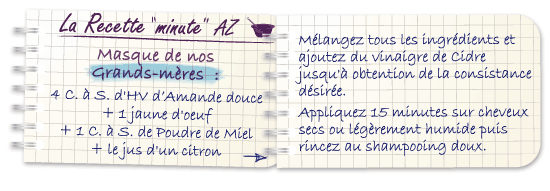 La Recette "minute" AZ
Masque de nos
Grands-mères :
4 C. à S. d'HV d'Amande douce
+ 1 jaune d'oeuf
+ 1 C. à S. de Poudre de Miel
+ le jus d'un citron
Mélangez tous les ingrédients et
ajoutez du vinaigre de Cidre
jusqu'à obtention de la consistance
désirée.
Appliquez 15 minutes sur cheveux
secs ou légèrement humide puis
rincez au shampooing doux.